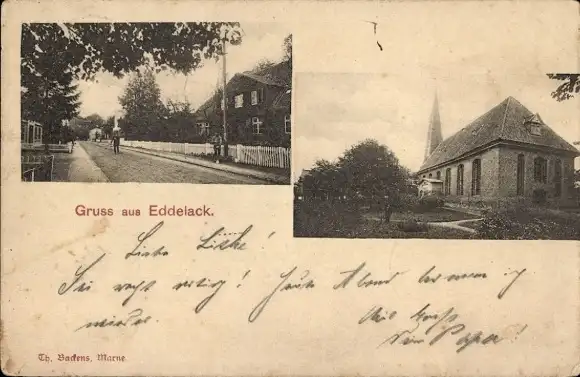 Gruss aus Eddelack.
Liebe Liske!
Sei recht artig! Heute Abend komme ich
wieder.
Mit Gruß
Dein Papa!
Th. Backens, Marne